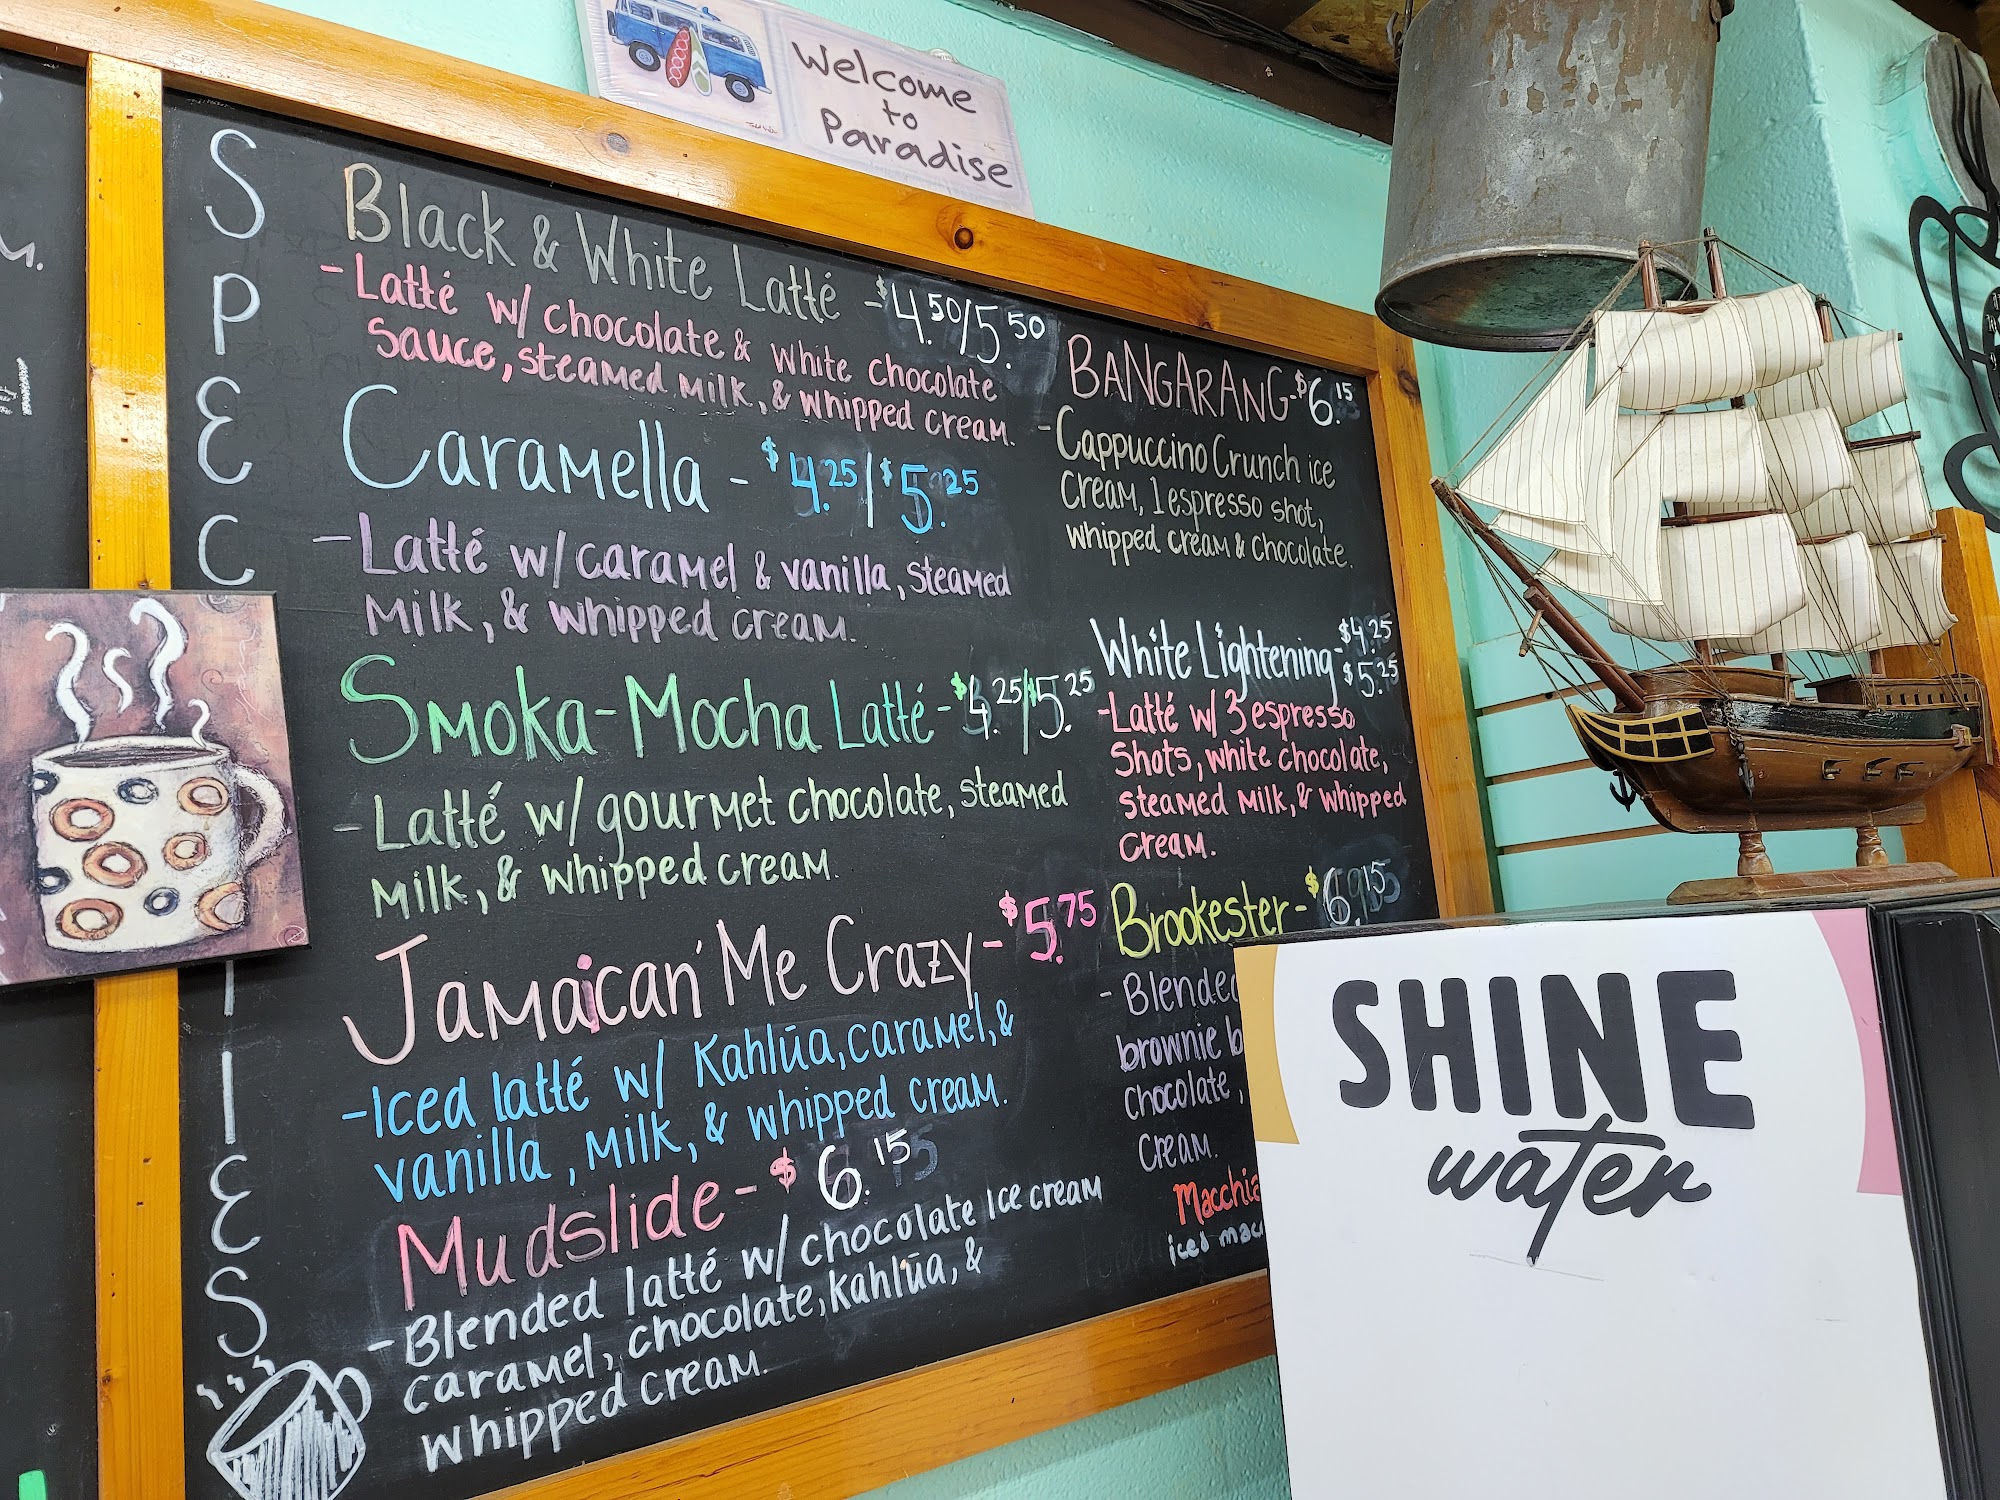 Welcome
to
Paradise
SPECIALTIES
Black & White Latté - $4.50/5.50
- Latté w/ chocolate & white chocolate
sauce, steamed milk, & whipped cream.
Caramella - $4.25/$5.25
- Latté w/ caramel & vanilla, steamed
milk, & whipped cream.
Smoka-Mocha Latté - $4.25/$5.25
- Latté w/ gourmet chocolate, steamed
milk, & whipped cream.
Jamaican' Me Crazy - $5.75
- Iced latté w/ Kahlūa, caramel, &
vanilla, milk, & whipped cream.
Mudslide - $6.15
- Blended latté w/ chocolate ice cream
caramel, chocolate, kahlūa, &
whipped cream.
BANGARANG - $6.15
- Cappuccino Crunch ice
cream, 1 espresso shot,
whipped cream & chocolate.
White Lightening - $4.25
$5.25
- Latté w/ 3 espresso
shots, white chocolate,
steamed milk, & whipped
cream.
Brookester - $6.15
- Blended
brownie
chocolate,
cream.
Macchia
iced mac
SHINE
water